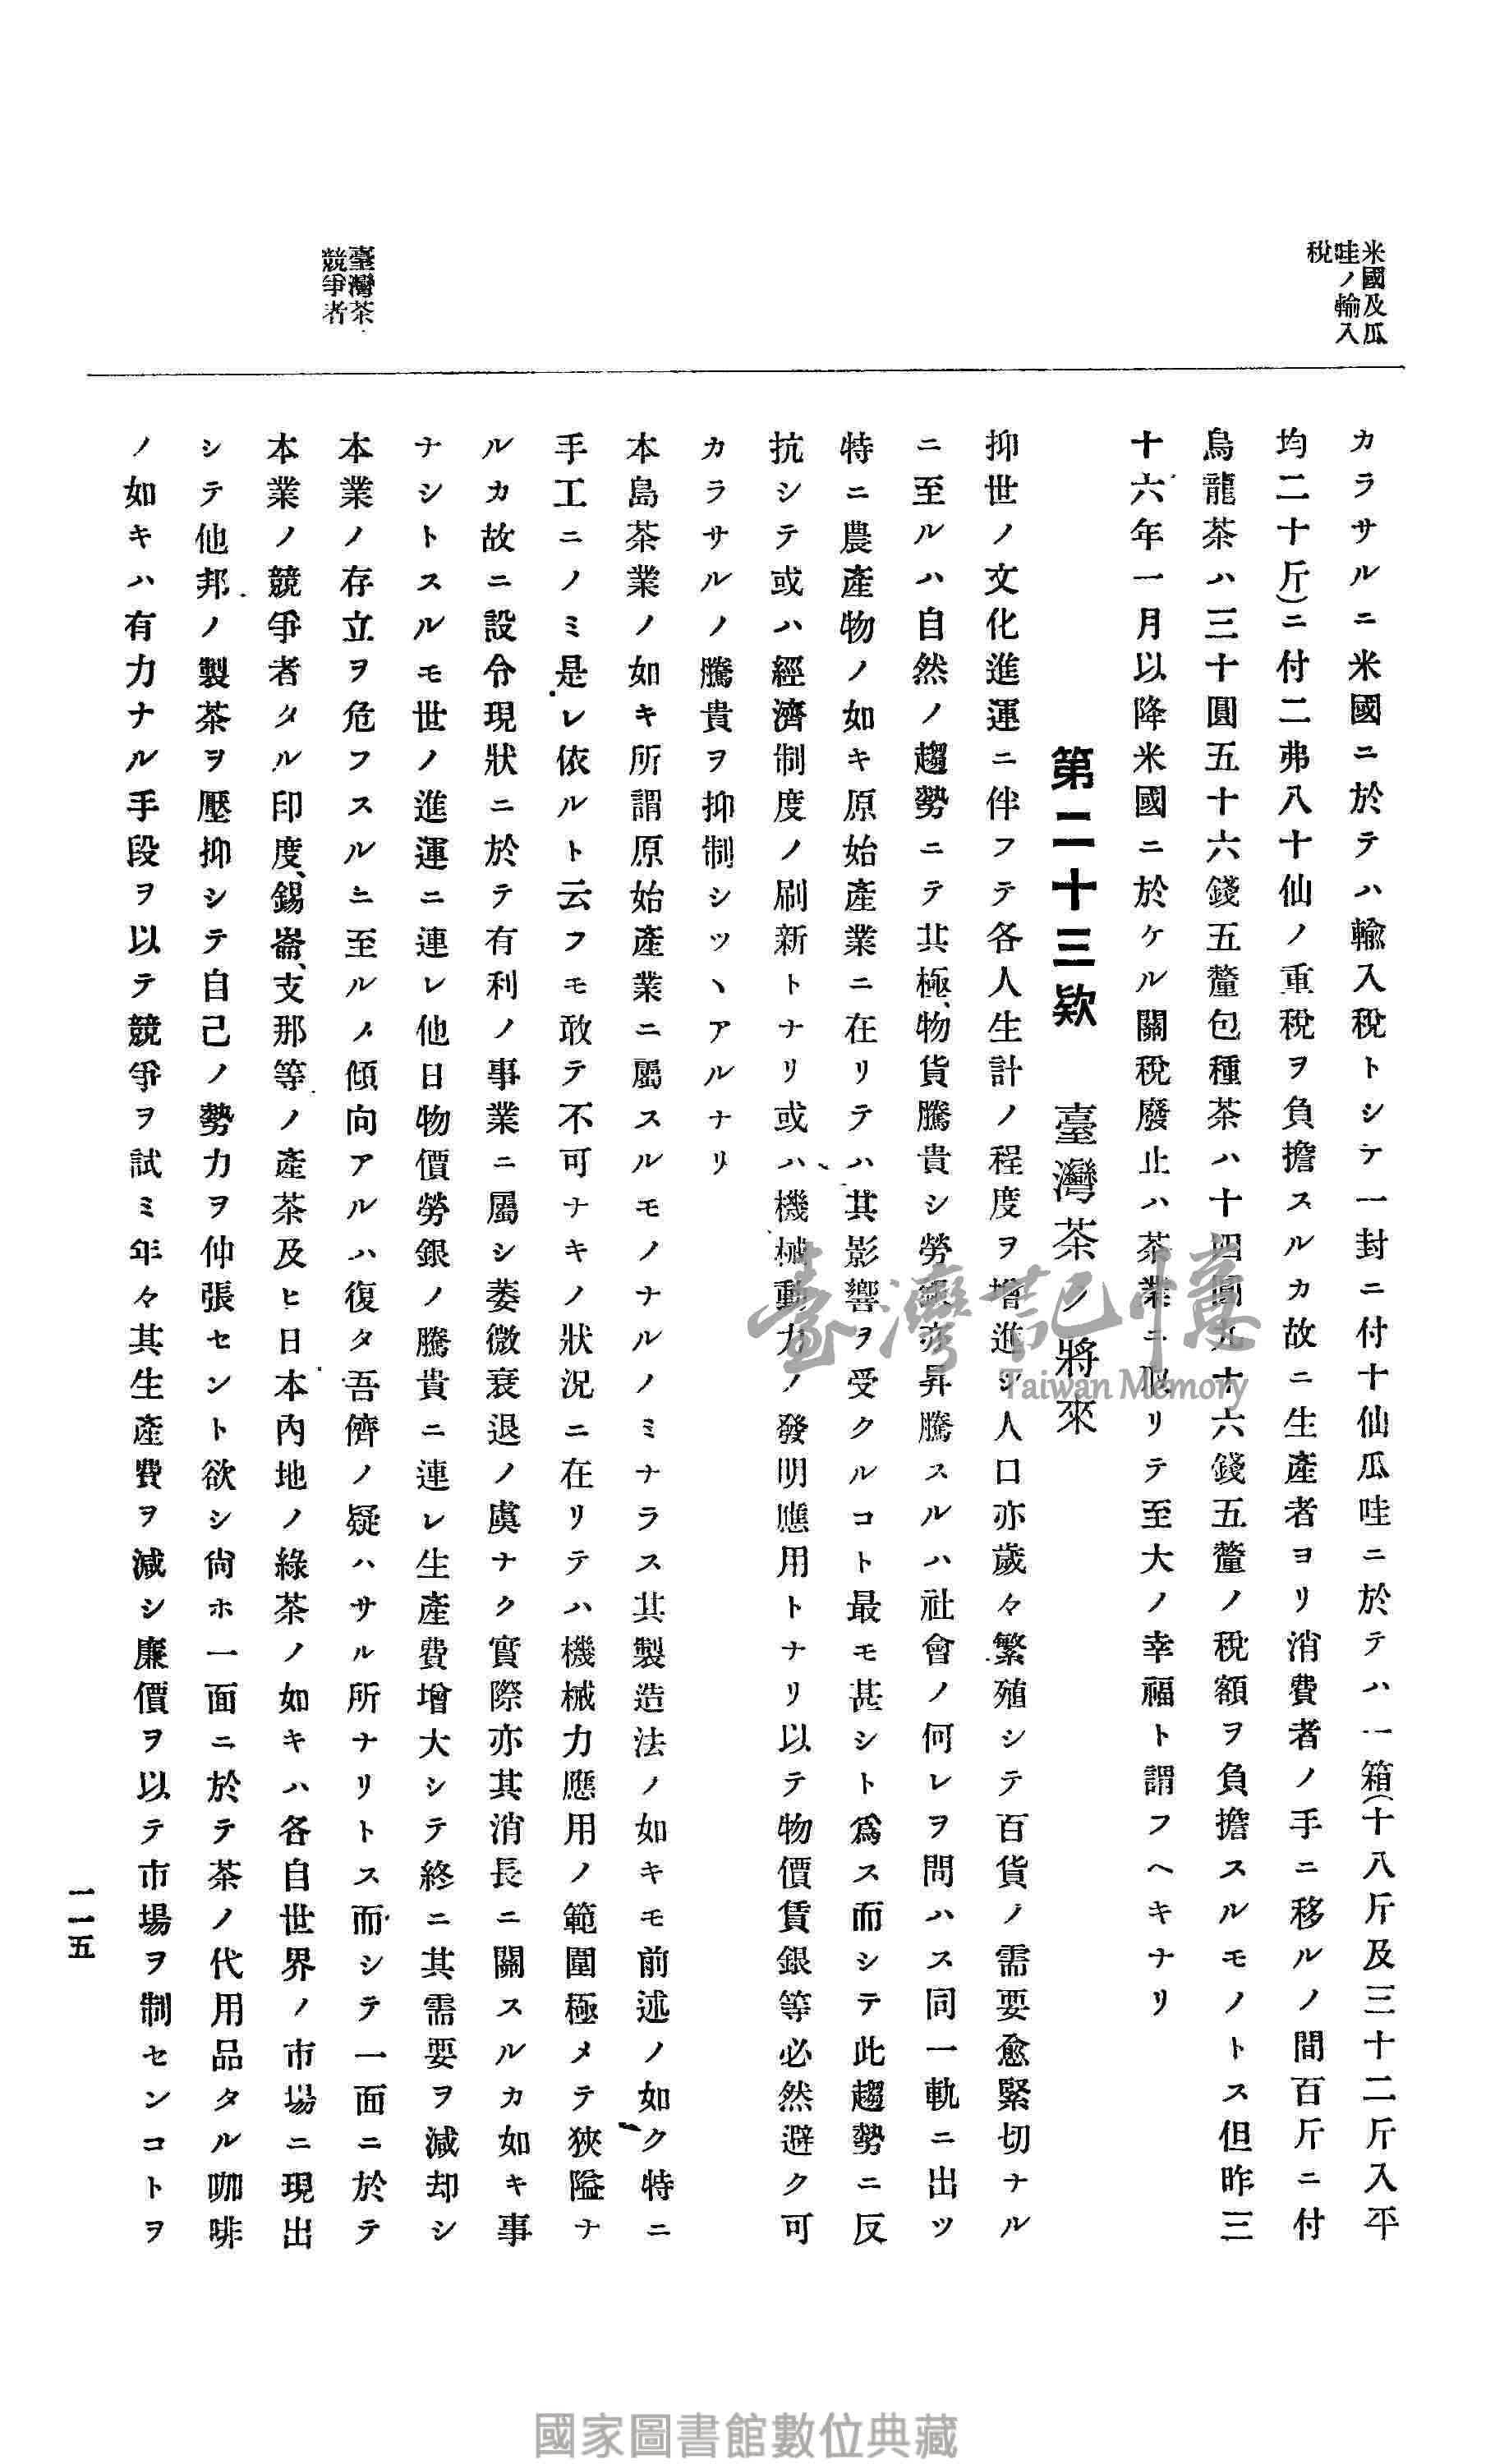 米國及瓜
哇ノ輸入
稅
臺灣茶
競爭者
カラサルニ米國ニ於テハ輸入稅トシテ一封ニ付十仙瓜哇ニ於テハ一箱(十八斤及三十二斤入平
均二十斤)ニ付二弗八十仙ノ重稅ヲ負擔スルカ故ニ生產者ヨリ消費者ノ手ニ移ルノ間百斤ニ付
烏龍茶ハ三十圓五十六錢五釐包種茶ハ十四圓九十六錢五釐ノ稅額ヲ負擔スルモノトス但昨三
十六年一月以降米國ニ於ケル關稅廢止ハ茶業ニ取リテ至大ノ幸福ト謂フヘキナリ
第二十三欵 臺灣茶ノ將來
抑世ノ文化進運ニ伴フテ各人生計ノ程度ヲ增進シ人口亦歲々繁殖シテ百貨ノ需要愈緊切ナル
ニ至ルハ自然ノ趨勢ニテ其極、物貨騰貴シ勞銀亦昇騰スルハ社會ノ何レヲ問ハス同一軌ニ出ツ
特ニ農產物ノ如キ原始產業ニ在リテハ其影響ヲ受クルコト最モ甚シト爲ス而シテ此趨勢ニ反
抗シテ或ハ經濟制度ノ刷新トナリ或ハ機械動力ノ發明應用トナリ以テ物價賃銀等必然避ク可
カラサルノ騰貴ヲ抑制シツヽアルナリ
本島茶業ノ如キ所謂原始產業ニ屬スルモノナルノミナラス其製造法ノ如キモ前述ノ如ク特ニ
手工ニノミ是レ依ルト云フモ敢テ不可ナキノ狀況ニ在リテハ機械力應用ノ範圍極メテ狹隘ナ
ルカ故ニ設令現狀ニ於テ有利ノ事業ニ屬シ萎微衰退ノ虞ナク實際亦其消長ニ關スルカ如キ事
ナシトスルモ世ノ進運ニ連レ他日物價勞銀ノ騰貴ニ連レ生產費增大シテ終ニ其需要ヲ減却シ
本業ノ存立ヲ危フスルニ至ルノ傾向アルハ復タ吾儕ノ疑ハサル所ナリトス而シテ一面ニ於テ
本業ノ競爭者タル印度、錫崙、支那等ノ產茶及ヒ日本內地ノ綠茶ノ如キハ各自世界ノ市場ニ現出
シテ他邦ノ製茶ヲ壓抑シテ自己ノ勢力ヲ伸張セント欲シ尙ホ一面ニ於テ茶ノ代用品タル咖啡
ノ如キハ有力ナル手段ヲ以テ競爭ヲ試ミ年々其生產費ヲ減シ廉價ヲ以テ市場ヲ制センコトヲ
一一五
臺灣記憶
Taiwan Memory
國家圖書館數位典藏